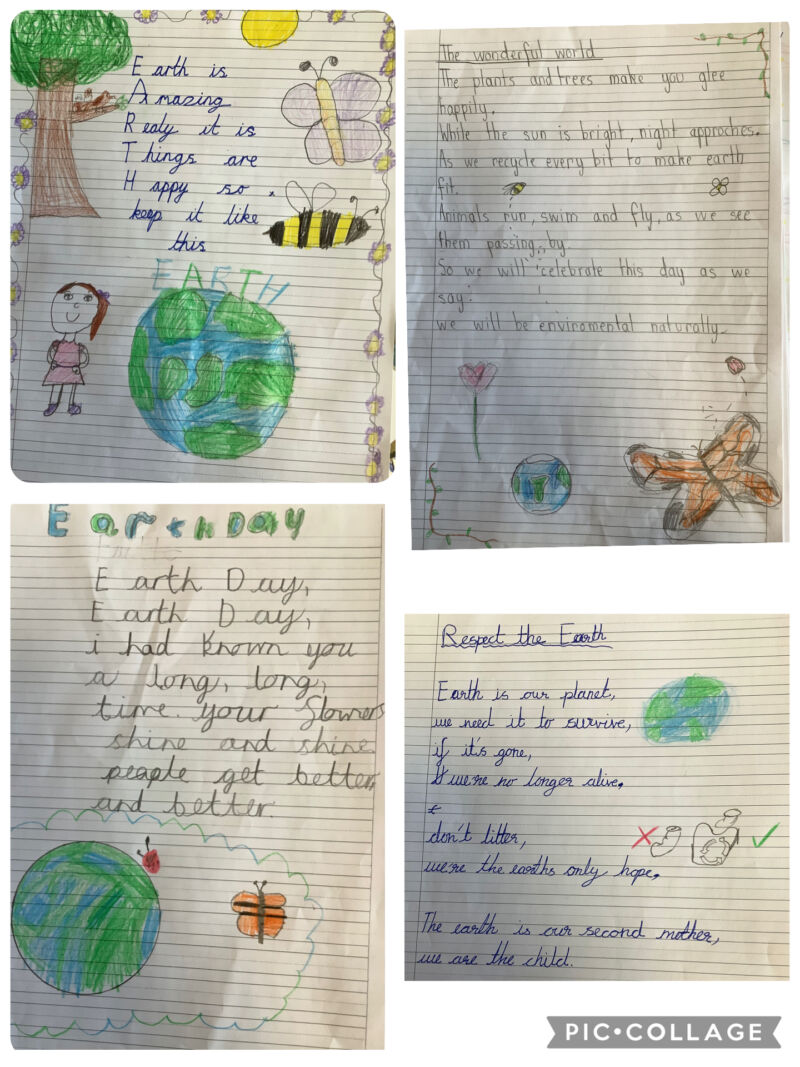 Earth is
Amazing
Realy it is
Things are
Happy so
keep it like
this
EARTH
The wonderful world
The plants and trees make you glee
happily.
While the sun is bright, night approches.
As we recycle every bit to make earth
fit.
Animals run, swim and fly, as we see
them passing by.
So we will celebrate this day as we
say:
we will be enviromental naturally
Earth DAY
Earth Day,
Earth Day,
i had known you
a long, long,
time. your flowers
shine and shine
people get better
and better.
Respect the Earth
Earth is our planet,
we need it to survive,
if it's gone,
we're no longer alive.
don't litter,
we're the earths only hope.
The earth is our second mother,
we are the child.
PIC•COLLAGE